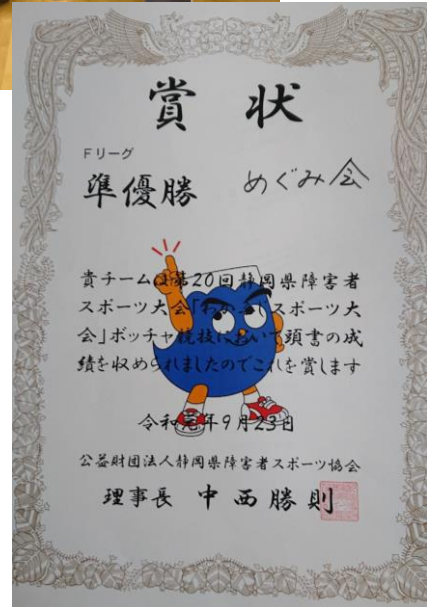 賞状
Fリーグ
準優勝 めぐみ会
貴チームは第20回静岡県障害者
スポーツ大会「わかふじスポーツ大
会」ボッチャ競技において頭書の成
績を収められましたのでこれを賞します
令和元年9月23日
公益財団法人静岡県障害者スポーツ協会
理事長 中西勝則